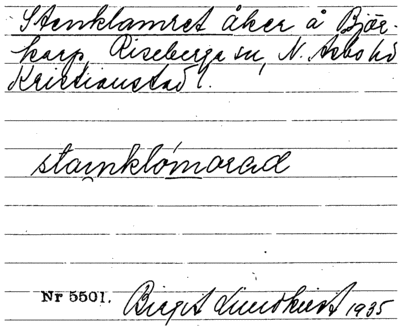 Stenklamret åker å Björ-
karp, Riseberga sn, N. Åsbo hd
Kristianstad l.
stạinklómarad
Nr 5501. Birgit Lundkvist 1935